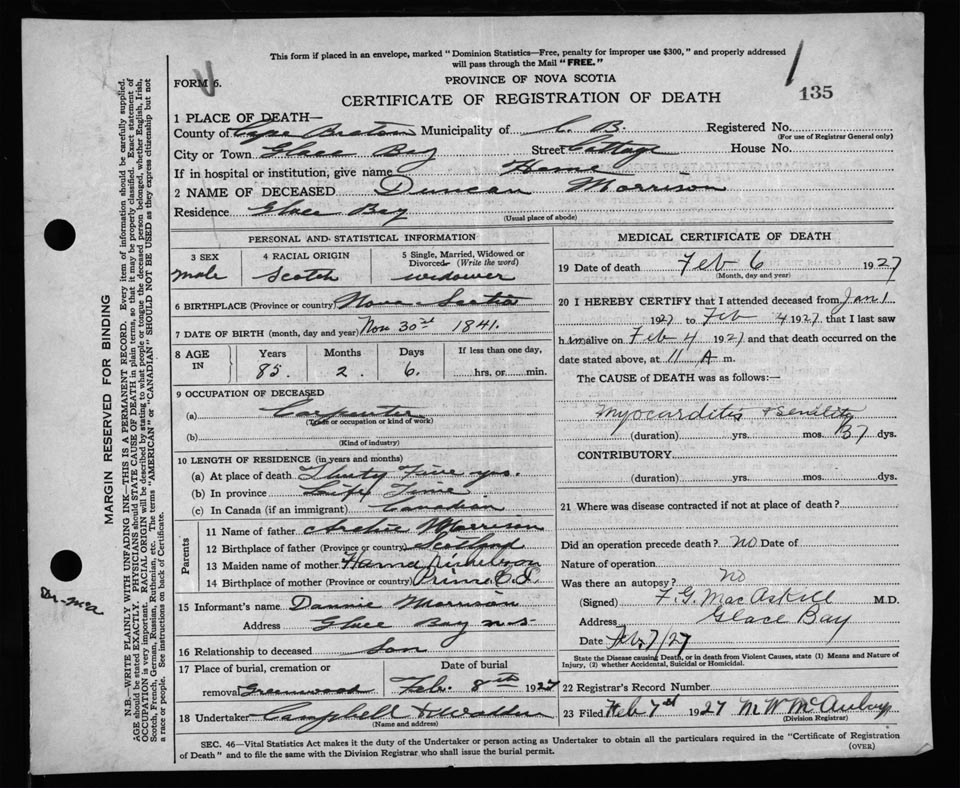 This form if placed in an envelope, marked "Dominion Statistics—Free, penalty for improper use $300," and properly addressed
will pass through the Mail "FREE."
FORM 6.
PROVINCE OF NOVA SCOTIA
135
CERTIFICATE OF REGISTRATION OF DEATH
1 PLACE OF DEATH—
County of Cape Breton Municipality of C. B. Registered No.
(For use of Registrar General only)
City or Town Glace Bay Street Cottage House No.
If in hospital or institution, give name Home
2 NAME OF DECEASED Duncan Morrison
Residence Glace Bay
(Usual place of abode)
PERSONAL AND STATISTICAL INFORMATION
3 SEX 4 RACIAL ORIGIN 5 Single, Married, Widowed or
Divorced (Write the word)
male Scotch widower
6 BIRTHPLACE (Province or country) Nova Scotia
7 DATE OF BIRTH (month, day and year) Nov 30 1841.
8 AGE IN Years Months Days If less than one day,
85. 2. 6. hrs. or min.
9 OCCUPATION OF DECEASED
(a) Carpenter
(Trade or occupation or kind of work)
(b)
(Kind of industry)
10 LENGTH OF RESIDENCE (in years and months)
(a) At place of death Thirty Five yrs.
(b) In province Life Time
(c) In Canada (if an immigrant) Canadian
Parents
11 Name of father Archie Morrison
12 Birthplace of father (Province or country) Scotland
13 Maiden name of mother
14 Birthplace of mother (Province or country)
15 Informant's name Dannie Morrison
Address Glace Bay N S
16 Relationship to deceased Son
17 Place of burial, cremation or Date of burial
removal Greenwood Feb. 8th 1927
18 Undertaker Campbell
(Name and address)
MEDICAL CERTIFICATE OF DEATH
19 Date of death Feb 6 1927
(Month, day and year)
20 I HEREBY CERTIFY that I attended deceased from Jan 1
1927 to Feb 4 1927 that I last saw
him alive on Feb 4 1927 and that death occurred on the
date stated above, at 11 A m.
The CAUSE of DEATH was as follows:—
Myocarditis & senility
(duration) yrs. mos. 37 dys.
CONTRIBUTORY
(duration) yrs. mos. dys.
21 Where was disease contracted if not at place of death?
Did an operation precede death? No Date of
Nature of operation
Was there an autopsy? no
(Signed) F. G. MacAskill M.D.
Address Glace Bay
Date Feb 7/27
State the Disease causing Death, or in death from Violent Causes, state (1) Means and Nature of
Injury, (2) whether Accidental, Suicidal or Homicidal.
22 Registrar's Record Number
23 Filed Feb 7 1927 M W McAulay
(Division Registrar)
SEC. 46—Vital Statistics Act makes it the duty of the Undertaker or person acting as Undertaker to obtain all the particulars required in the "Certificate of Registration
of Death" and to file the same with the Division Registrar who shall issue the burial permit.
(OVER)
MARGIN RESERVED FOR BINDING
N.B.—WRITE PLAINLY WITH UNFADING INK—THIS IS A PERMANENT RECORD. Every item of information should be carefully supplied.
AGE should be stated EXACTLY. PHYSICIANS should STATE CAUSE OF DEATH in plain terms, so that it may be properly classified. Exact statement of
OCCUPATION is very important. RACIAL ORIGIN will be described by stating to what people or tongue the deceased person belonged, whether English, Irish,
Scotch, French, German, Russian, Ruthenian, etc. The terms "AMERICAN" or "CANADIAN" SHOULD NOT BE USED as they express citizenship but not
a race or people. See instructions on back of Certificate.